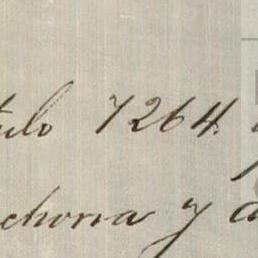 tulo 7264.
chorra y